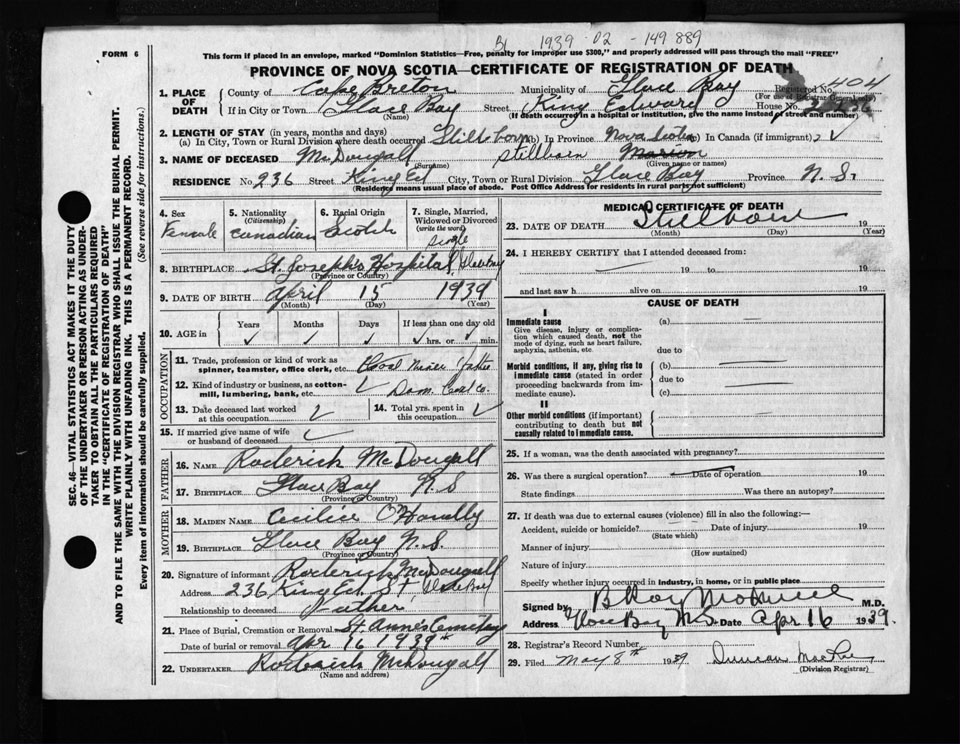 1939 · 02 - 149889
FORM 6
This form if placed in an envelope, marked "Dominion Statistics—Free, penalty for improper use $300," and properly addressed will pass through the mail "FREE"
PROVINCE OF NOVA SCOTIA—CERTIFICATE OF REGISTRATION OF DEATH
1. PLACE OF DEATH County of Cape Breton Municipality of Glace Bay Registered No. 404
(For use of Registrar General only)
If in City or Town Glace Bay (Name) Street King Edward House No. 236
(If death occurred in a hospital or institution, give the name instead of street and number)
2. LENGTH OF STAY (in years, months and days)
(a) In City, Town or Rural Division where death occurred Stillborn (b) In Province Nova Scotia (c) In Canada (if immigrant)
3. NAME OF DECEASED McDougall (Surname) Stillborn Marion (Given name or names)
RESIDENCE No. 236 Street King Ed City, Town or Rural Division Glace Bay Province N.S.
(Residency means usual place of abode. Post Office Address for residents in rural parts not sufficient)
4. Sex Female
5. Nationality (Citizenship) Canadian
6. Racial Origin Scotch
7. Single, Married, Widowed or Divorced (write the word) Single
8. BIRTHPLACE St. Joseph's Hospital, Glace Bay
(Province or Country)
9. DATE OF BIRTH April 15 1939
(Month) (Day) (Year)
10. AGE in Years Months Days If less than one day old
hrs. or min.
OCCUPATION
11. Trade, profession or kind of work as spinner, teamster, office clerk, etc. Coal Miner Father
12. Kind of industry or business, as cotton-mill, lumbering, bank, etc. Dom. Coal Co.
13. Date deceased last worked at this occupation
14. Total yrs. spent in this occupation
15. If married give name of wife or husband of deceased
FATHER
16. NAME Roderick McDougall
17. BIRTHPLACE Glace Bay N.S
(Province or Country)
MOTHER
18. MAIDEN NAME Cecilia O'Handly
19. BIRTHPLACE Glace Bay N.S.
(Province or Country)
20. Signature of informant Roderick McDougall
Address 236 King Ed. St Glace Bay
Relationship to deceased Father
21. Place of Burial, Cremation or Removal St. Annes Cemetery
Date of burial or removal Apr 16 1939
22. UNDERTAKER Roderick McDougall
(Name and address)
MEDICAL CERTIFICATE OF DEATH
23. DATE OF DEATH Stillborn 19
(Month) (Day) (Year)
24. I HEREBY CERTIFY that I attended deceased
19 to 19
and last saw h alive on 19
CAUSE OF DEATH
I
Immediate cause (a)
Give disease, injury or complication which caused death, not the mode of dying, such as heart failure, asphyxia, asthenia, etc
due to
Morbid conditions, if any, giving rise to immediate cause (stated in order proceeding backwards from immediate cause). (b)
due to
(c)
II
Other morbid conditions (if important) contributing to death but not causally related to immediate cause.
25. If a woman, was the death associated with pregnancy?
26. Was there a surgical operation? Date of operation 19
State findings Was there an autopsy?
27. If death was due to external causes (violence) fill in also the following:—
Accident, suicide or homicide? Date of injury 19
(State which)
Manner of injury
(How sustained)
Nature of injury
Specify whether injury occurred in industry, in home, or in public place
Signed by M.D.
Address Glace Bay N.S. Date Apr 16 1939.
28. Registrar's Record Number
29. Filed May 8th 1939 Duncan MacRae
(Division Registrar)
SEC. 46—VITAL STATISTICS ACT MAKES IT THE DUTY
OF THE UNDERTAKER OR PERSON ACTING AS UNDER-
TAKER TO OBTAIN ALL THE PARTICULARS REQUIRED
IN THE "CERTIFICATE OF REGISTRATION OF DEATH"
AND TO FILE THE SAME WITH THE DIVISION REGISTRAR WHO SHALL ISSUE THE BURIAL PERMIT.
WRITE PLAINLY WITH UNFADING INK. THIS IS A PERMANENT RECORD.
Every item of information should be carefully supplied. (See reverse side for instructions.)